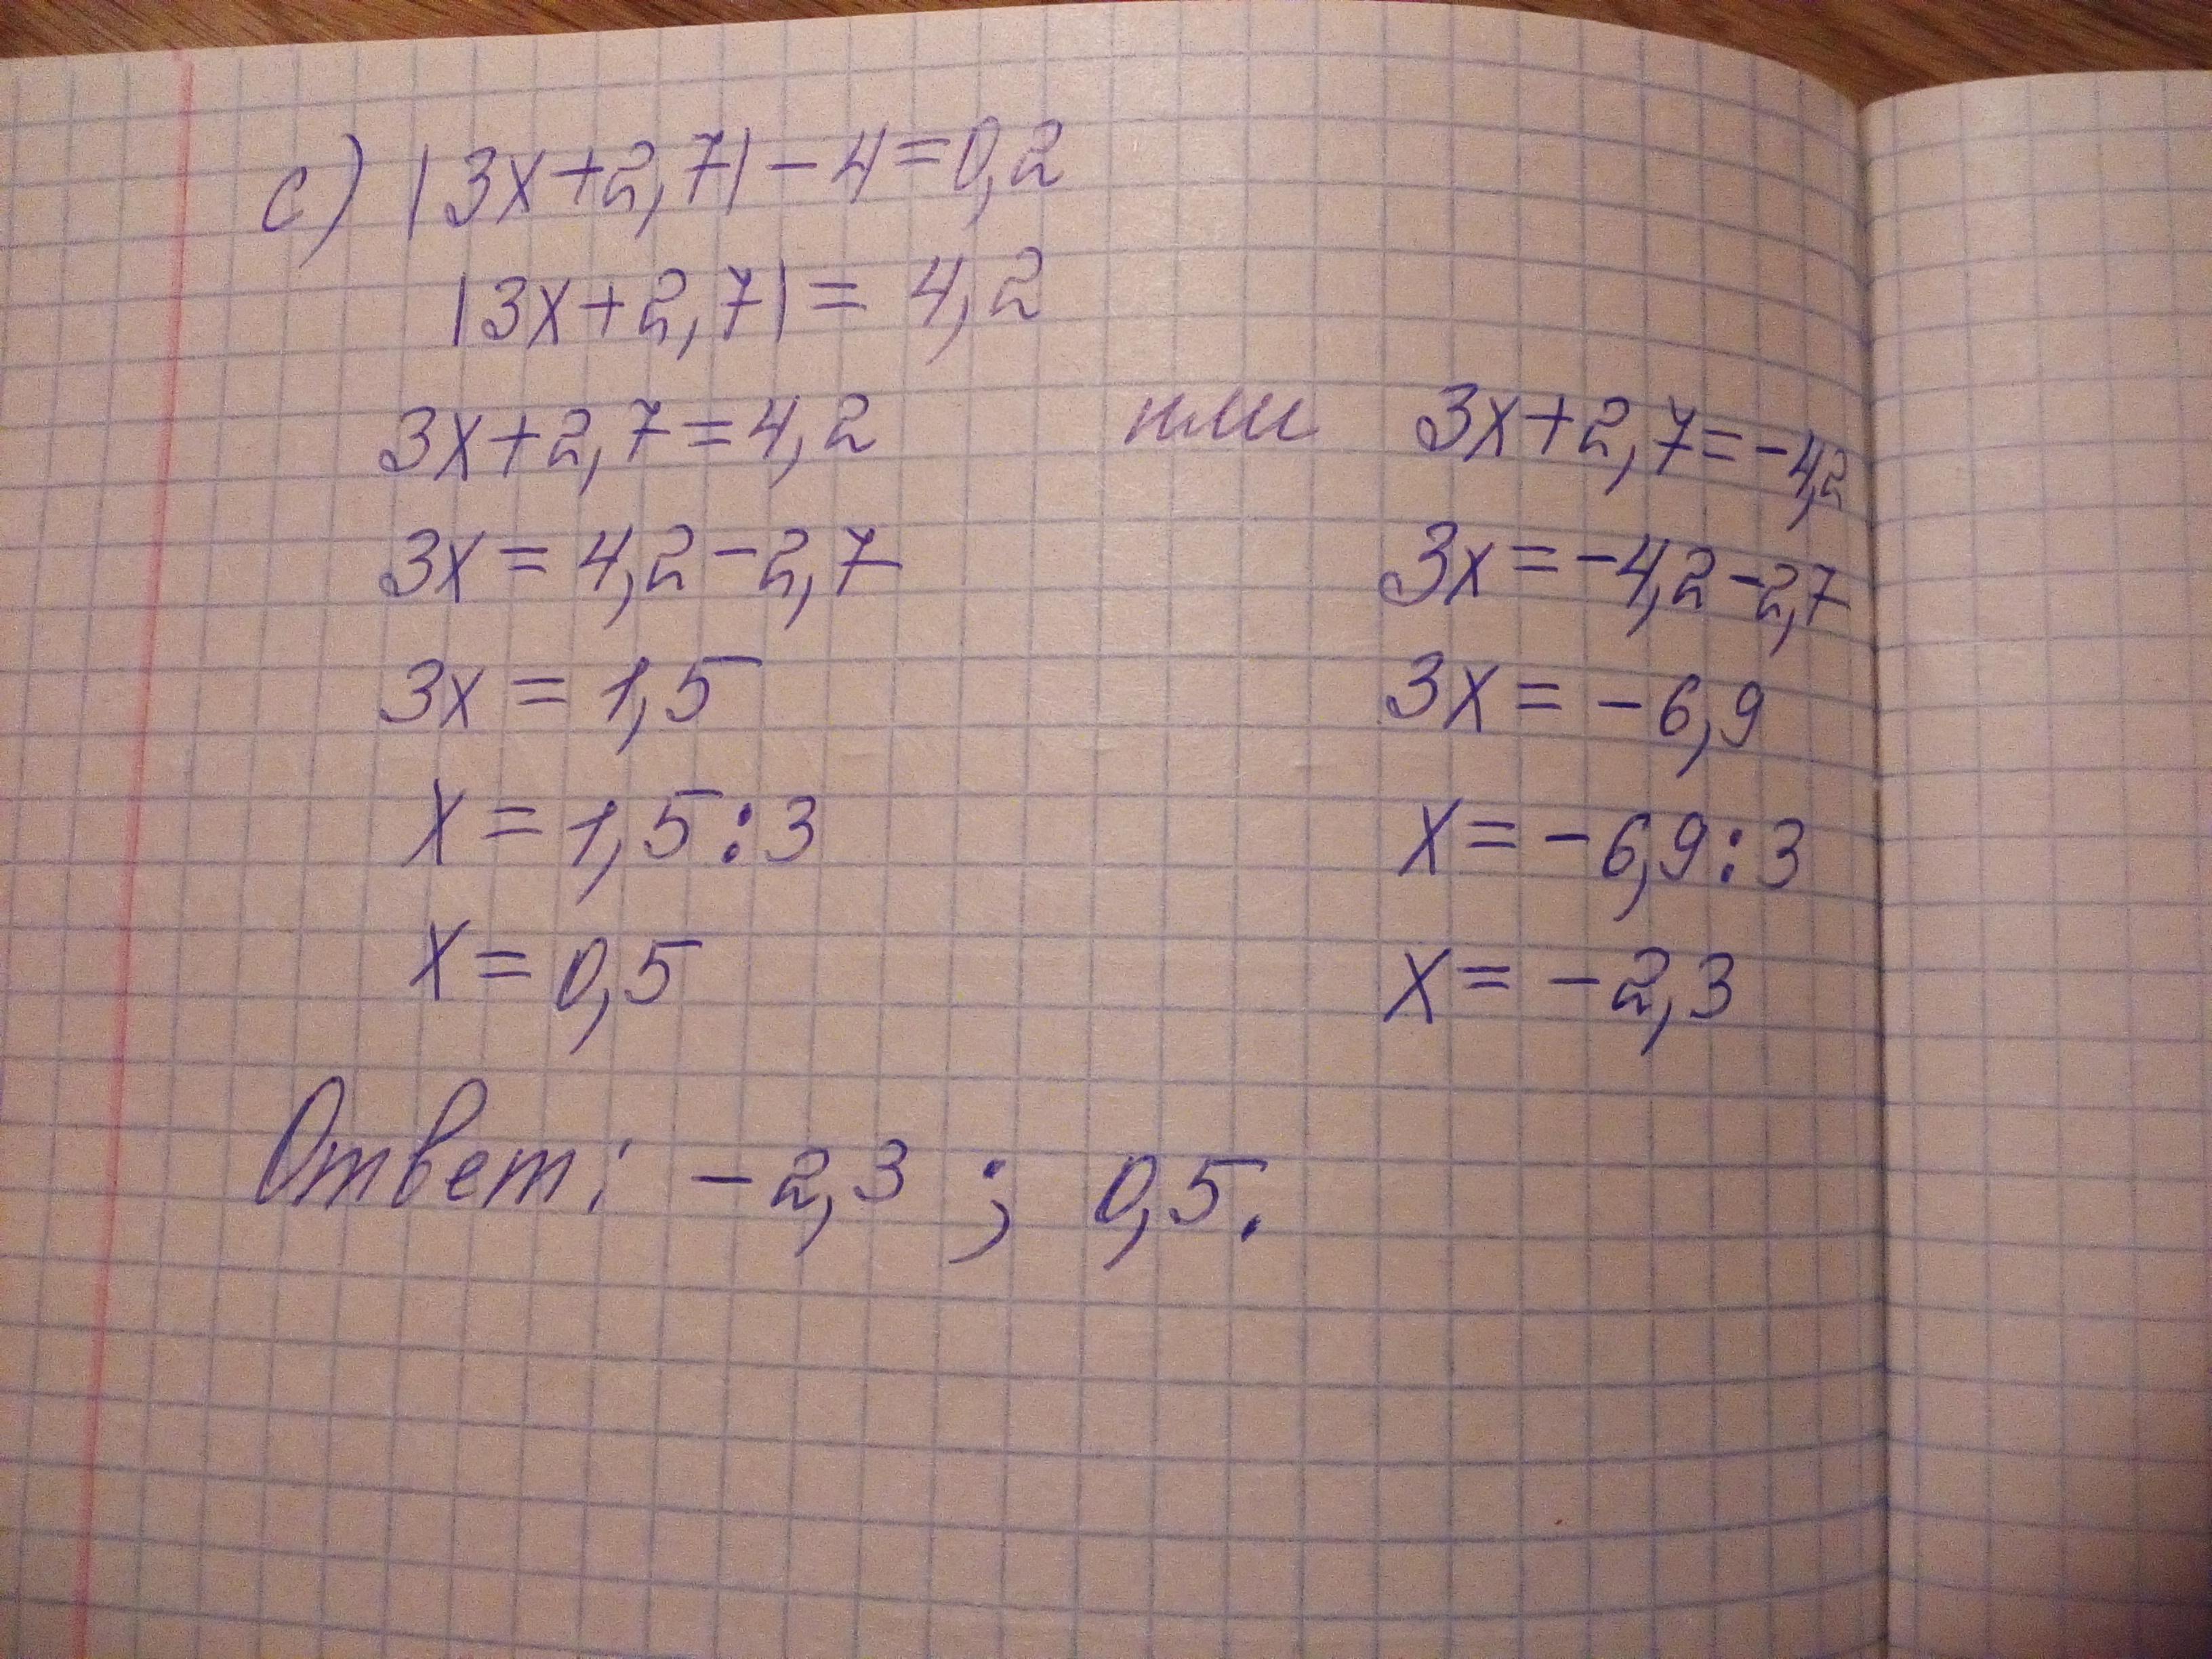 c) |3x+2,7|-4=0,2
|3x+2,7|= 4,2
3x+2,7=4,2 или 3x+2,7=-4,2
3x=4,2-2,7 3x=-4,2-2,7
3x=1,5 3x=-6,9
x=1,5:3 x=-6,9:3
x=0,5 x=-2,3
Ответ: -2,3 ; 0,5.